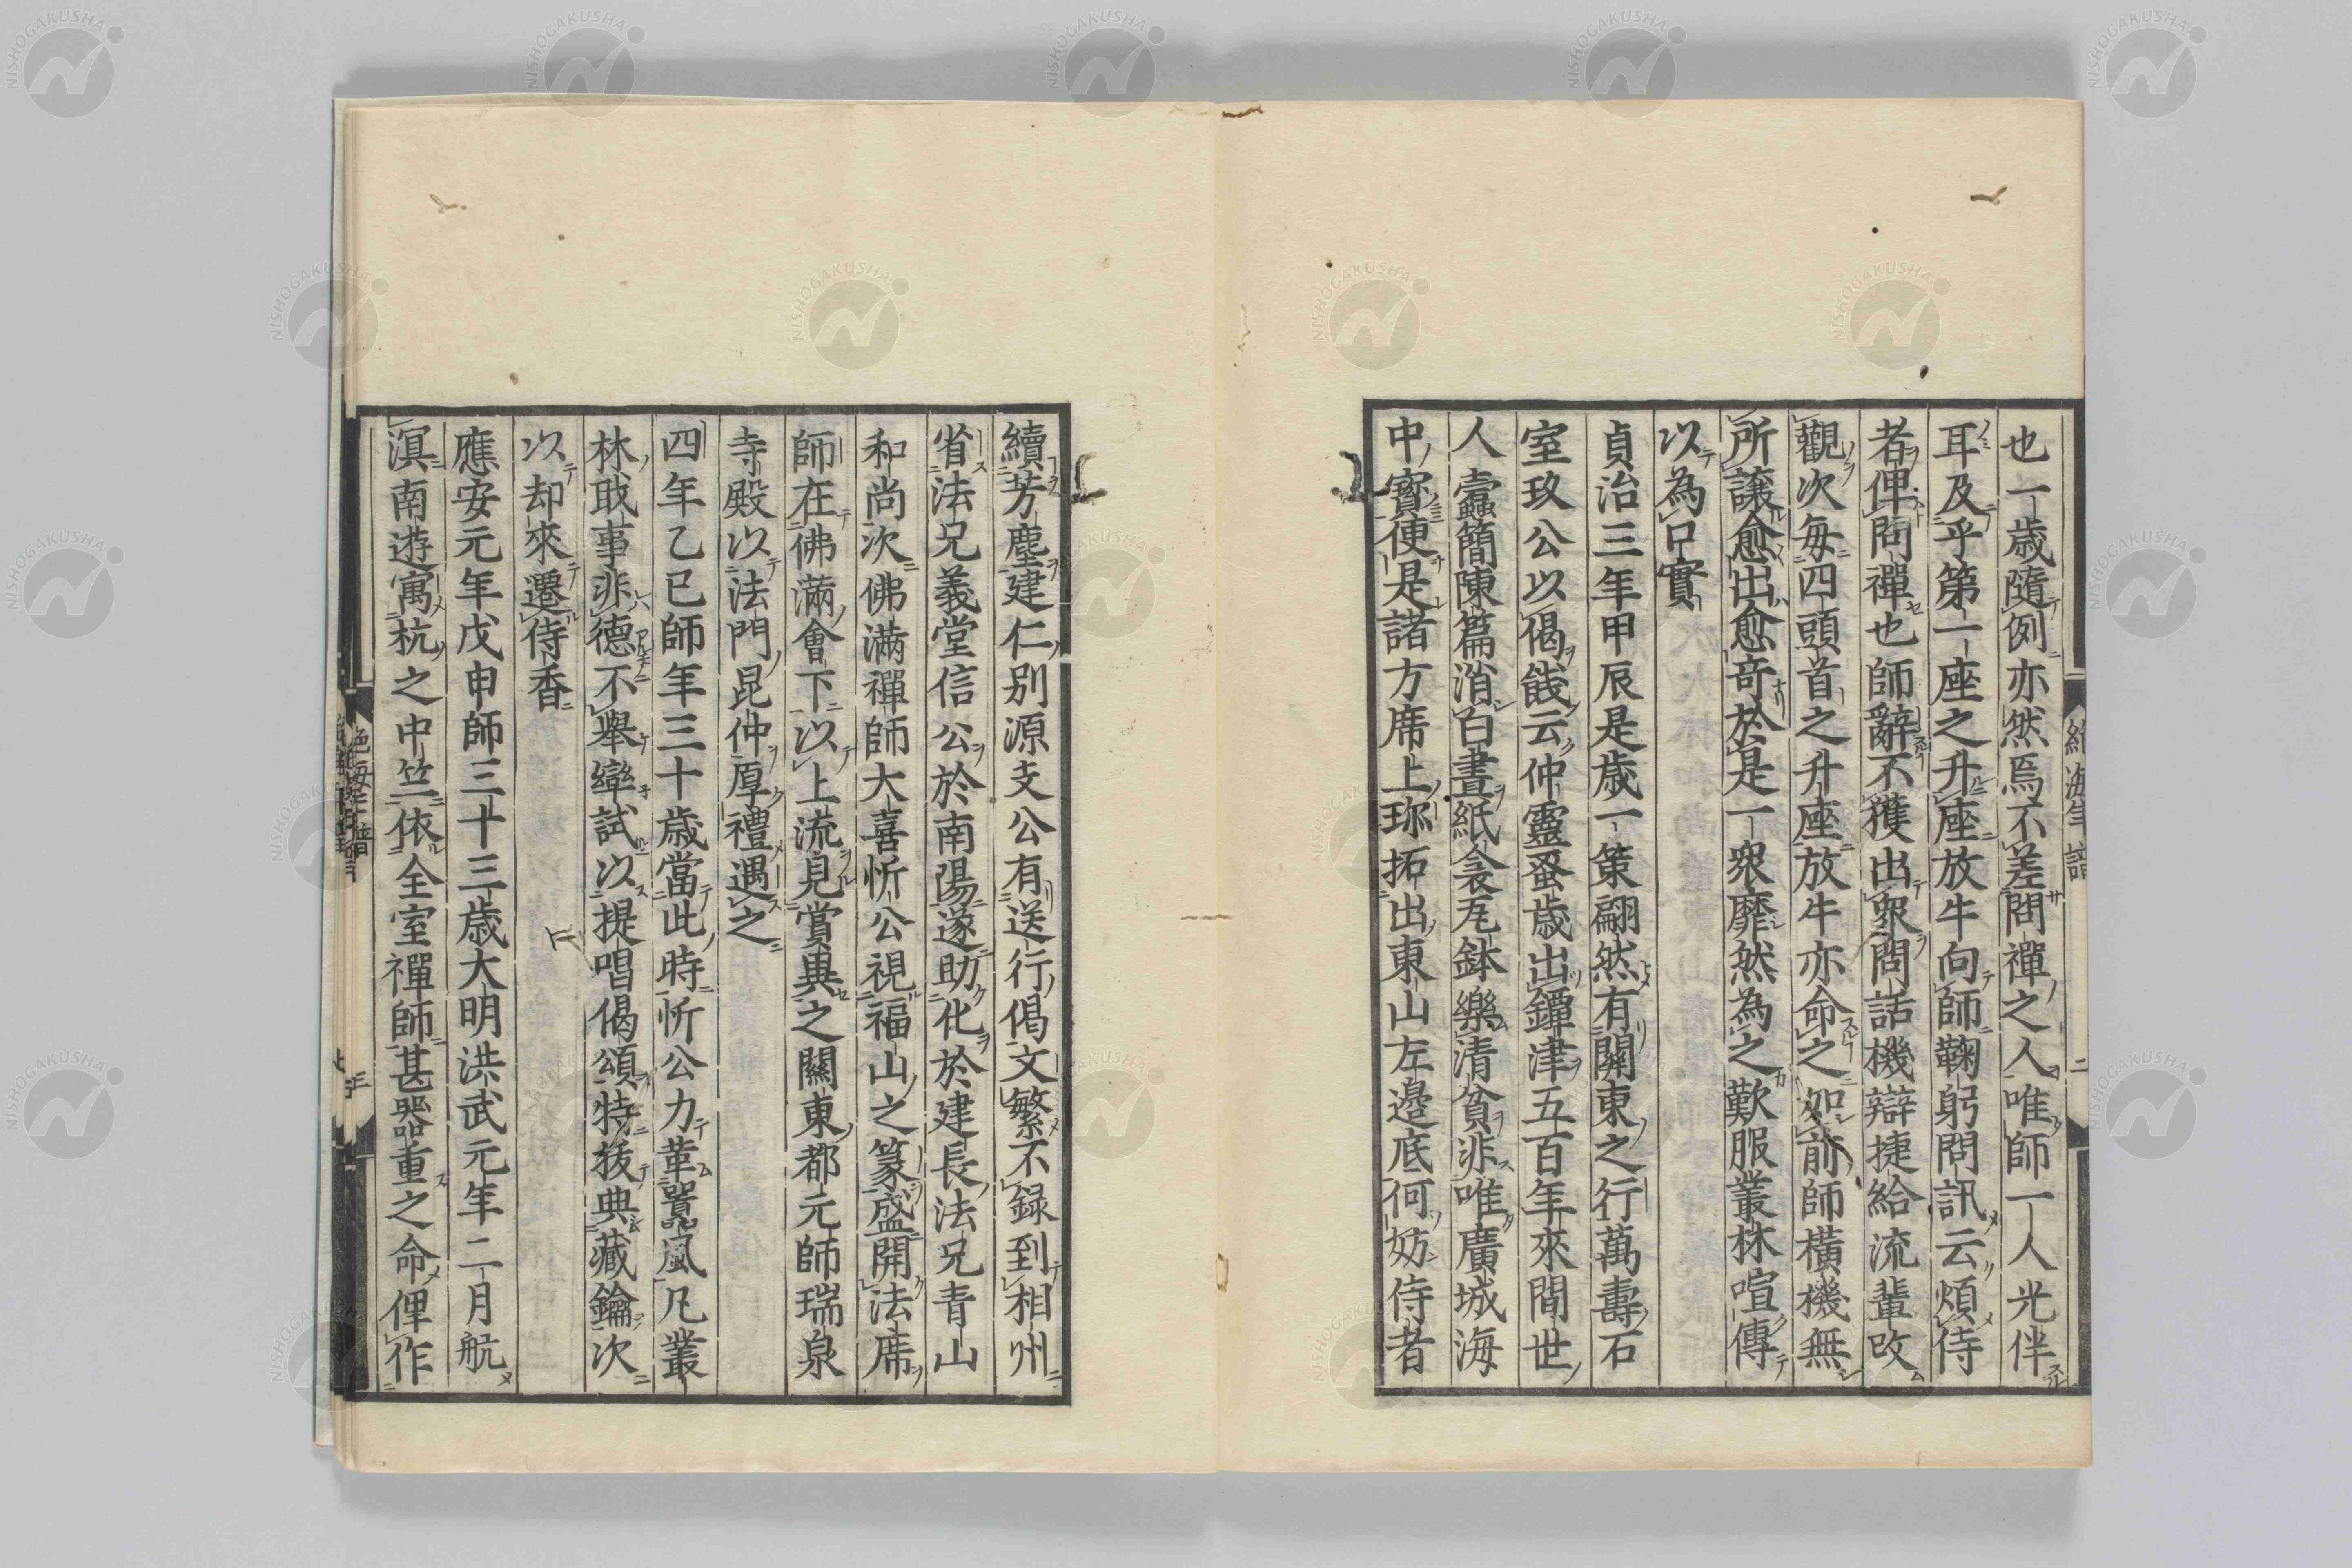 也一歳隨例亦然焉不差問禪之人唯師一人光伴
耳及乎第一座之升座放牛向師鞠躬問訊云煩侍
者俾問禪也師辭不獲出衆問話機辯捷給流輩改
觀次毎四頭首之升座放牛亦命之如前師橫機無
所讓愈出愈奇於是一衆靡然為之歎服叢林喧傳
以為口實
貞治三年甲辰是歳一策翩然有關東之行萬壽石
室玖公以偈餞云仲靈蚤歳出鐔津五百年來間世
人蠧簡陳篇消白晝紙衾瓦鉢樂清貧非唯廣城海
中寳便是諸方席上珎拓出東山左邉底何妨侍者
續芳塵建仁別源支公有送行偈文繁不録到相州
省法兄義堂信公於南陽遂助化於建長法兄青山
和尚次佛滿禪師大喜忻公視福山之篆盛開法席
師在佛滿會下以上流見賞異之關東都元師瑞泉
寺殿以法門昆仲厚禮遇之
四年乙巳師年三十歳當此時忻公力革囂風凡叢
林戢事非德不舉繂試以提唱偈頌特拔典藏鑰次
以却來遷侍香
應安元年戊申師三十三歳大明洪武元年二月航
溟南遊寓杭之中竺依全室禪師甚器重之命俾作
絶海年譜
二
NISHOGAKUSHA